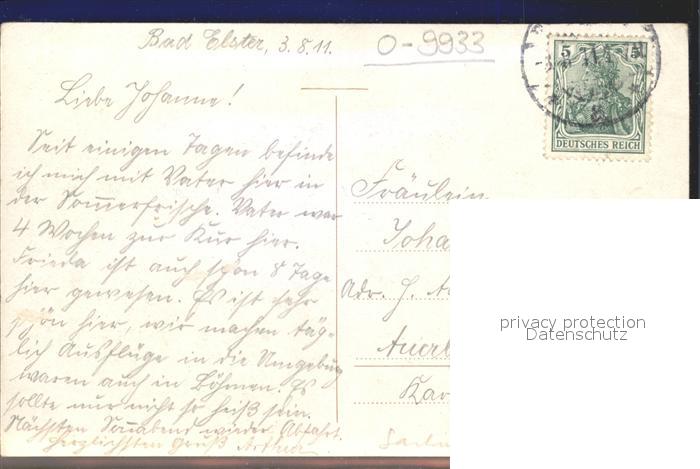 Bad Elster, 3.8.11.
O-9933
5 5
DEUTSCHES REICH
Liebe Johanne!
Seit einigen Tagen befinde
ich mich mit Vater hier in
der Sommerfrische. Vater war
4 Wochen zur Kur hier.
Frieda ist auch schon 8 Tage
hier gewesen. Es ist sehr
schön hier, wir machen täg-
lich Ausflüge in die Umgebung
waren auch in Böhmen. Es
sollte nur nicht so heiß sein.
Nächsten Sonnabend wieder Abfahrt.
Herzlichsten Gruß
Fräulein
Joha
Adr. H.
Auerb
Kar
privacy protection
Datenschutz